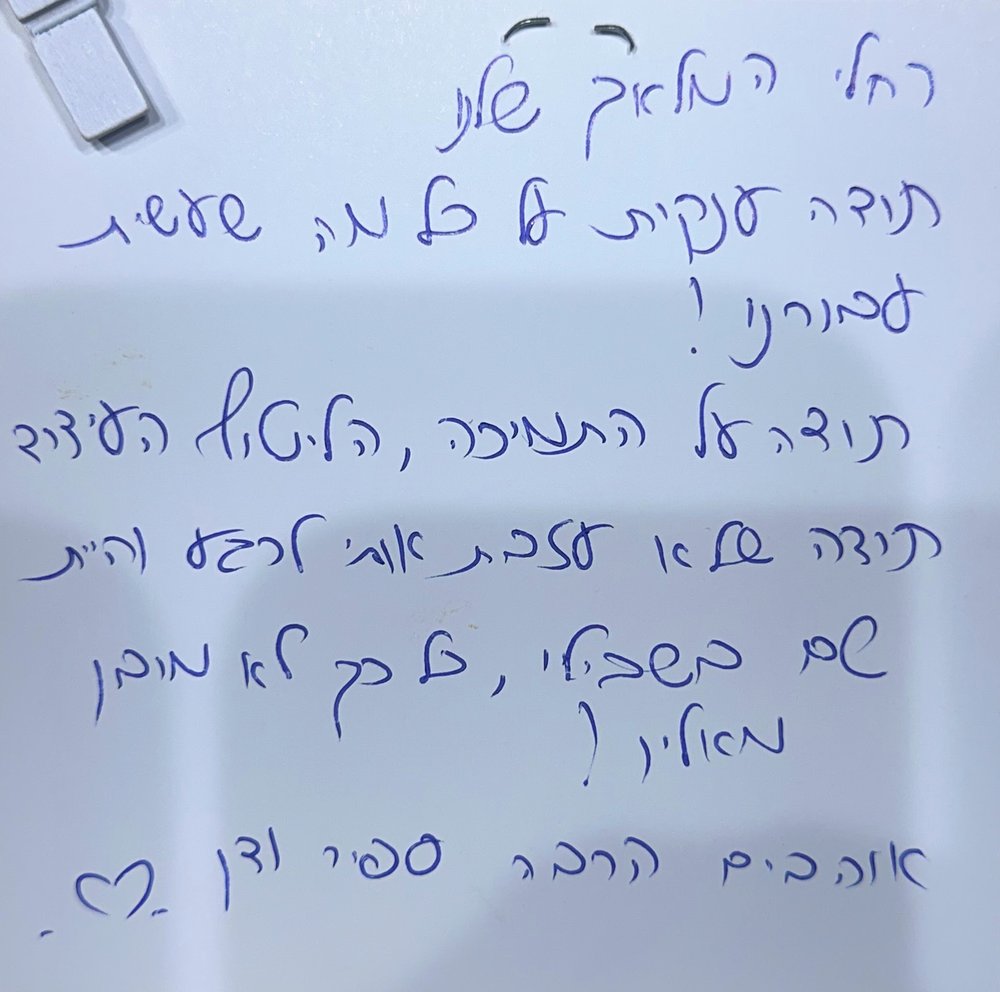 רחלי המלאך שלנו
תודה ענקית על כל מה שעשית
עבורנו !
תודה על התמיכה, הליטוף העידוד
תודה שלא עזבת אותי לרגע והיית
שם בשבילי, כל כך לא מובן
מאליו !
אוהבים הרבה ספיר ודן ♡